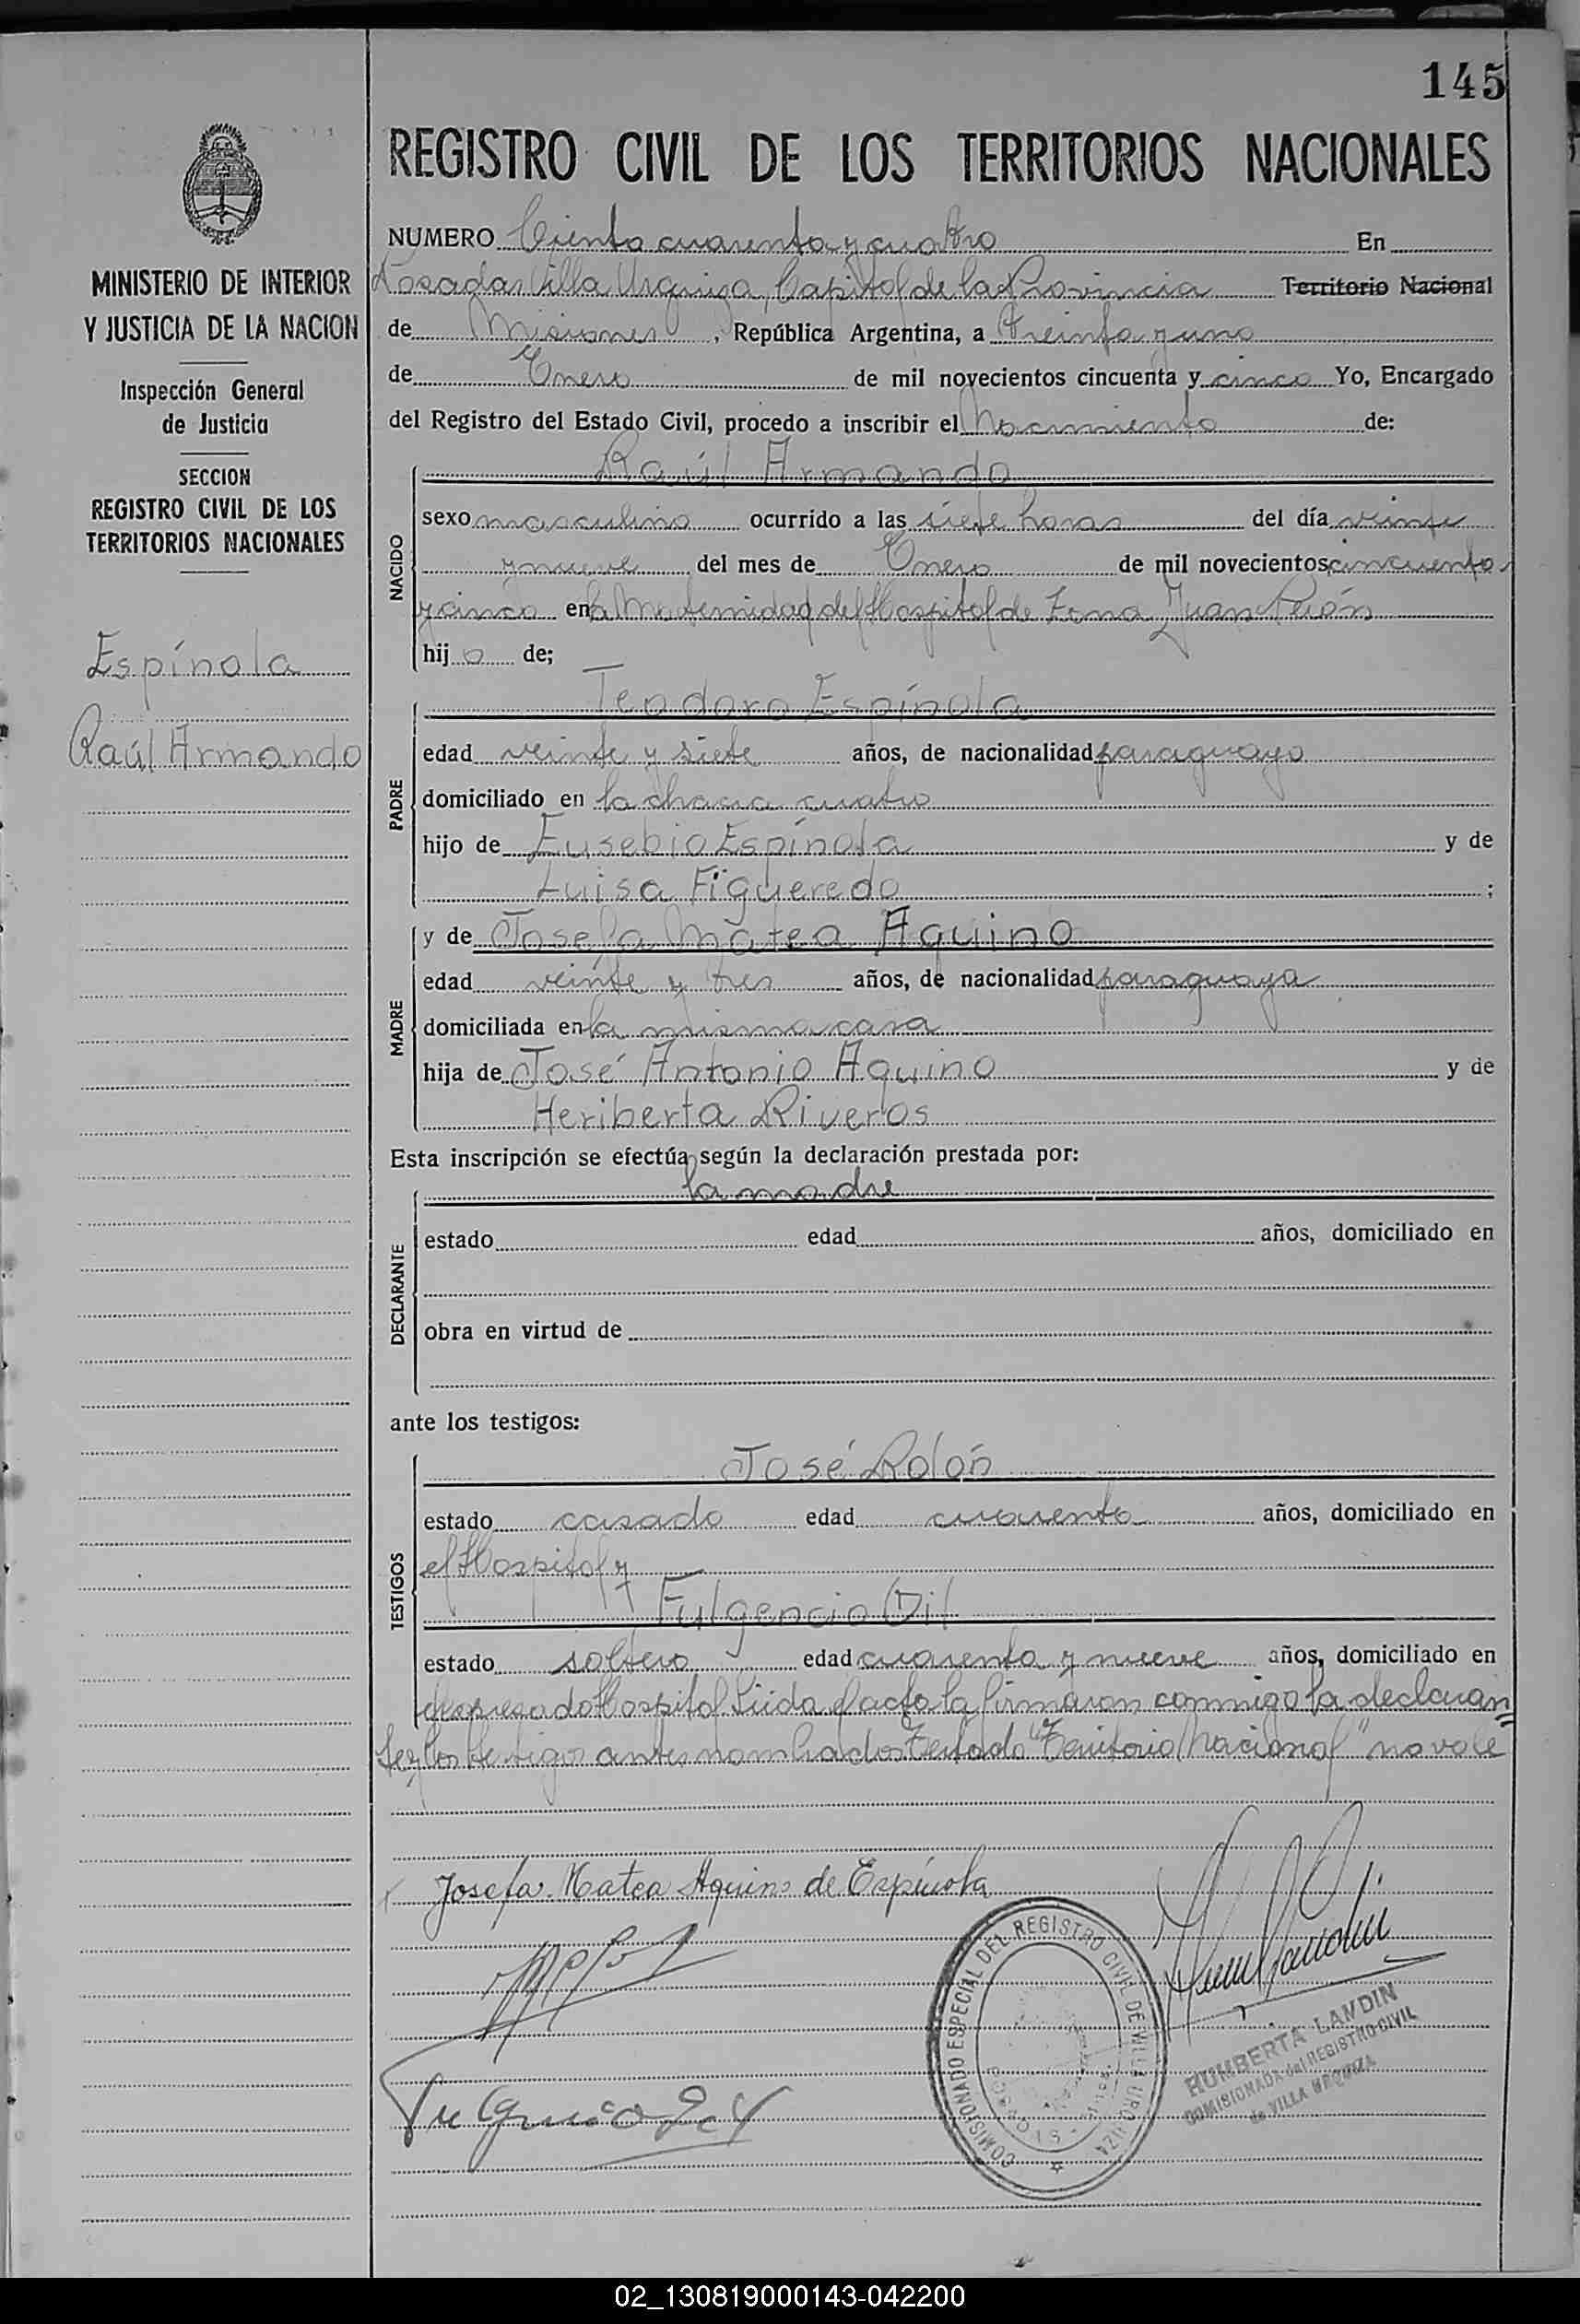 145
REGISTRO CIVIL DE LOS TERRITORIOS NACIONALES
MINISTERIO DE INTERIOR
Y JUSTICIA DE LA NACION
Inspección General
de Justicia
SECCION
REGISTRO CIVIL DE LOS
TERRITORIOS NACIONALES
Espínola
Raúl Armando
NUMERO Ciento cuarenta y cuatro En
Posadas Villa Urquiza, Capital de la Provincia Territorio Nacional
de Misiones, República Argentina, a treinta y uno
de Enero de mil novecientos cincuenta y cinco Yo, Encargado
del Registro del Estado Civil, procedo a inscribir el Nacimiento de:
NACIDO
Raúl Armando
sexo masculino ocurrido a las siete horas del día veinte
y nueve del mes de Enero de mil novecientos cincuenta
y cinco en la Maternidad del Hospital de Zona Juan Perón
hijo de;
PADRE
Teodoro Espínola
edad veinte y siete años, de nacionalidad paraguayo
domiciliado en la chacra cuatro
hijo de Eusebio Espínola y de
Luisa Figueredo ;
MADRE
y de Josefa Matea Aquino
edad veinte y tres años, de nacionalidad paraguaya
domiciliada en la misma casa
hija de José Antonio Aquino y de
Heriberta Riveros
Esta inscripción se efectúa según la declaración prestada por:
DECLARANTE
la madre
estado edad años, domiciliado en
obra en virtud de
ante los testigos:
TESTIGOS
José Rolón
estado casado edad cuarenta años, domiciliado en
el Hospital y
Fulgencio Gil
estado soltero edad cuarenta y nueve años, domiciliado en
expresado Hospital Leida el acta la firmaron conmigo la declaran
te y los testigos antes nombrados Testado "Territorio Nacional" no vale
Josefa Matea Aquino de Espínola
COMISIONADO ESPECIAL DEL REGISTRO CIVIL DE VILLA URQUIZA
HUMBERTA LANDIN
COMISIONADA del REGISTRO CIVIL
de VILLA URQUIZA
02_130819000143-042200